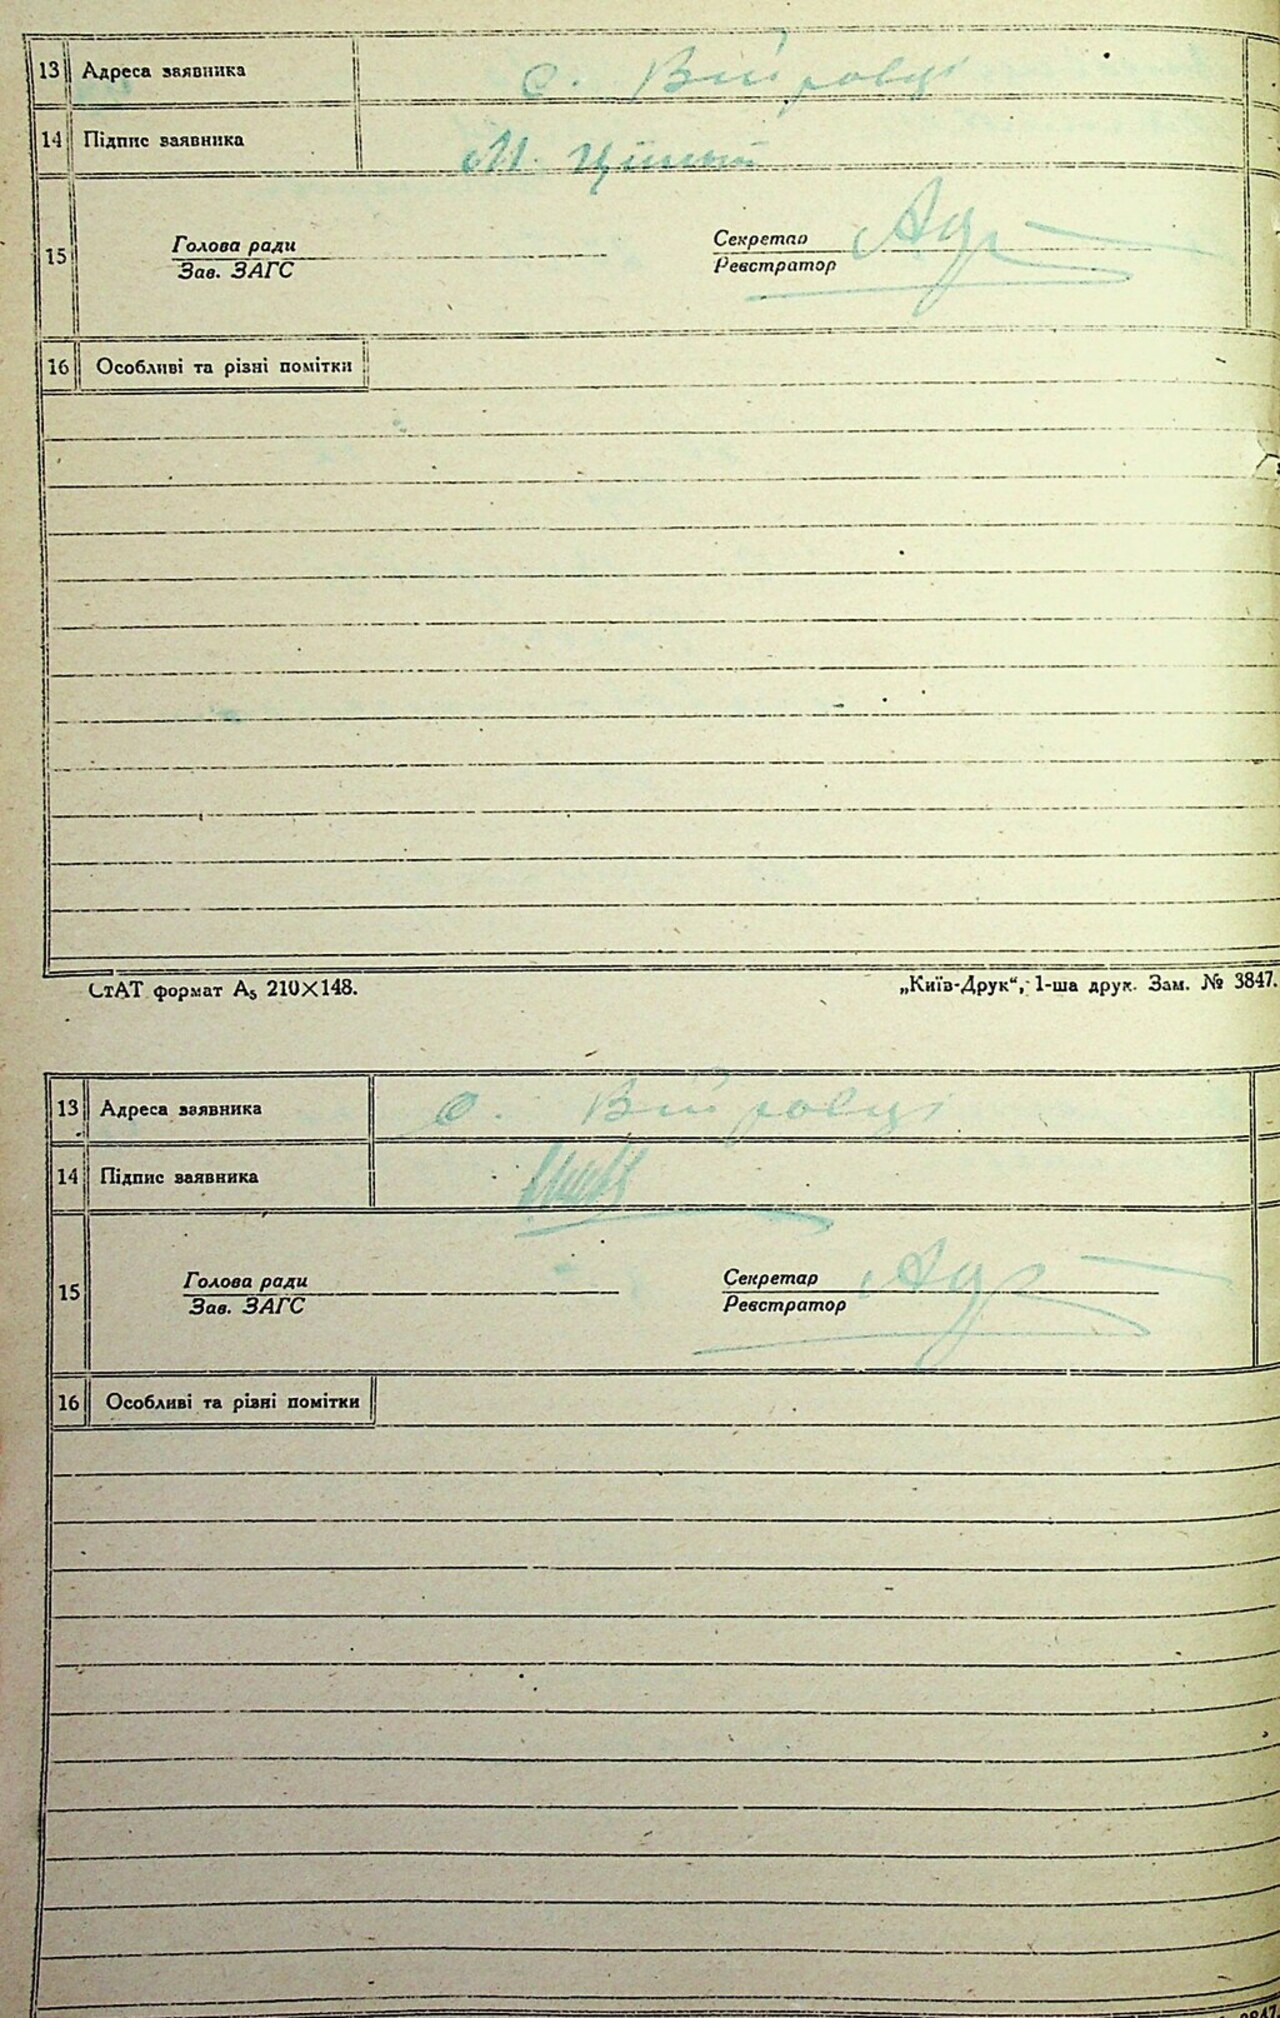 13 Адреса заявника с. Війтовці
14 Підпис заявника
15 Голова ради Секретар
Зав. ЗАГС Реєстратор
16 Особливі та різні помітки
СтАТ формат А₅ 210×148. „Київ-Друк“, 1-ша друк. Зам. № 3847.
13 Адреса заявника с. Війтовці
14 Підпис заявника
15 Голова ради Секретар
Зав. ЗАГС Реєстратор
16 Особливі та різні помітки
3847.